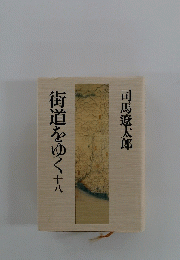 司馬遼太郎
街道をゆく 十八